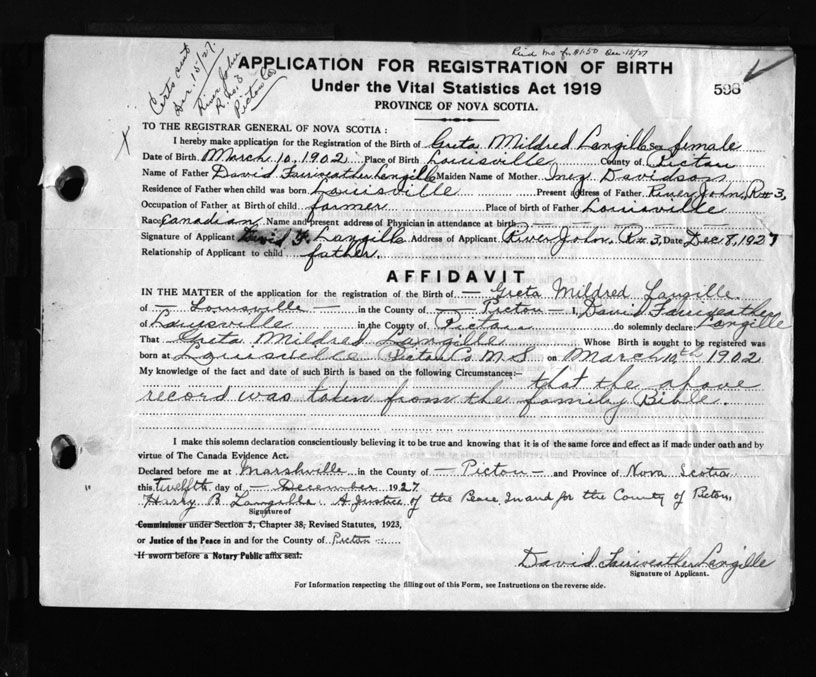 Recd mo for $1.50 Dec. 15/27
Certs sent
Dec. 15/27.
River John
R. No. 3
Pictou Co.
APPLICATION FOR REGISTRATION OF BIRTH
Under the Vital Statistics Act 1919
PROVINCE OF NOVA SCOTIA.
598
TO THE REGISTRAR GENERAL OF NOVA SCOTIA :
I hereby make application for the Registration of the Birth of Greta Mildred Langille Sex female
Date of Birth March 10, 1902 Place of Birth Louisville County of Pictou
Name of Father David Fairweather Langille Maiden Name of Mother Inez Davidson
Residence of Father when child was born Louisville Present address of Father River John, R#3,
Occupation of Father at Birth of child farmer Place of birth of Father Louisville
Race Canadian Name and present address of Physician in attendance at birth —
Signature of Applicant David F. Langille Address of Applicant River John, R#3, Date Dec 8, 1927
Relationship of Applicant to child father.
AFFIDAVIT
IN THE MATTER of the application for the registration of the Birth of — Greta Mildred Langille
of — Louisville — in the County of — Pictou — I, David Fairweather
of Louisville in the County of Pictou do solemnly declare: Langille
That Greta Mildred Langille Whose Birth is sought to be registered was
born at Louisville Pictou Co. N.S. on March 10th 1902
My knowledge of the fact and date of such Birth is based on the following Circumstances:— that the above
record was taken from the family Bible.
I make this solemn declaration conscientiously believing it to be true and knowing that it is of the same force and effect as if made under oath and by
virtue of The Canada Evidence Act.
Declared before me at Marshville in the County of — Pictou — and Province of Nova Scotia
this twelfth day of — December 1927
Harry B. Langille. A Justice of the Peace In and for the County of Pictou,
Signature of
Commissioner under Section 5, Chapter 38, Revised Statutes, 1923,
or Justice of the Peace in and for the County of Pictou —
If sworn before a Notary Public affix seal.
David Fairweather Langille
Signature of Applicant.
For Information respecting the filling out of this Form, see Instructions on the reverse side.